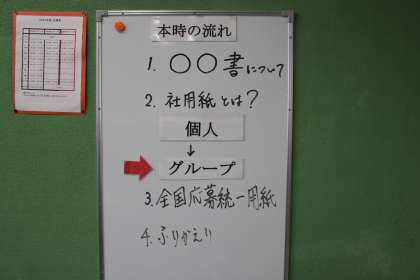 本時の流れ
1. 〇〇書について
2. 社用紙とは?
個人
↓
グループ
3. 全国応募統一用紙
4. ふりかえり